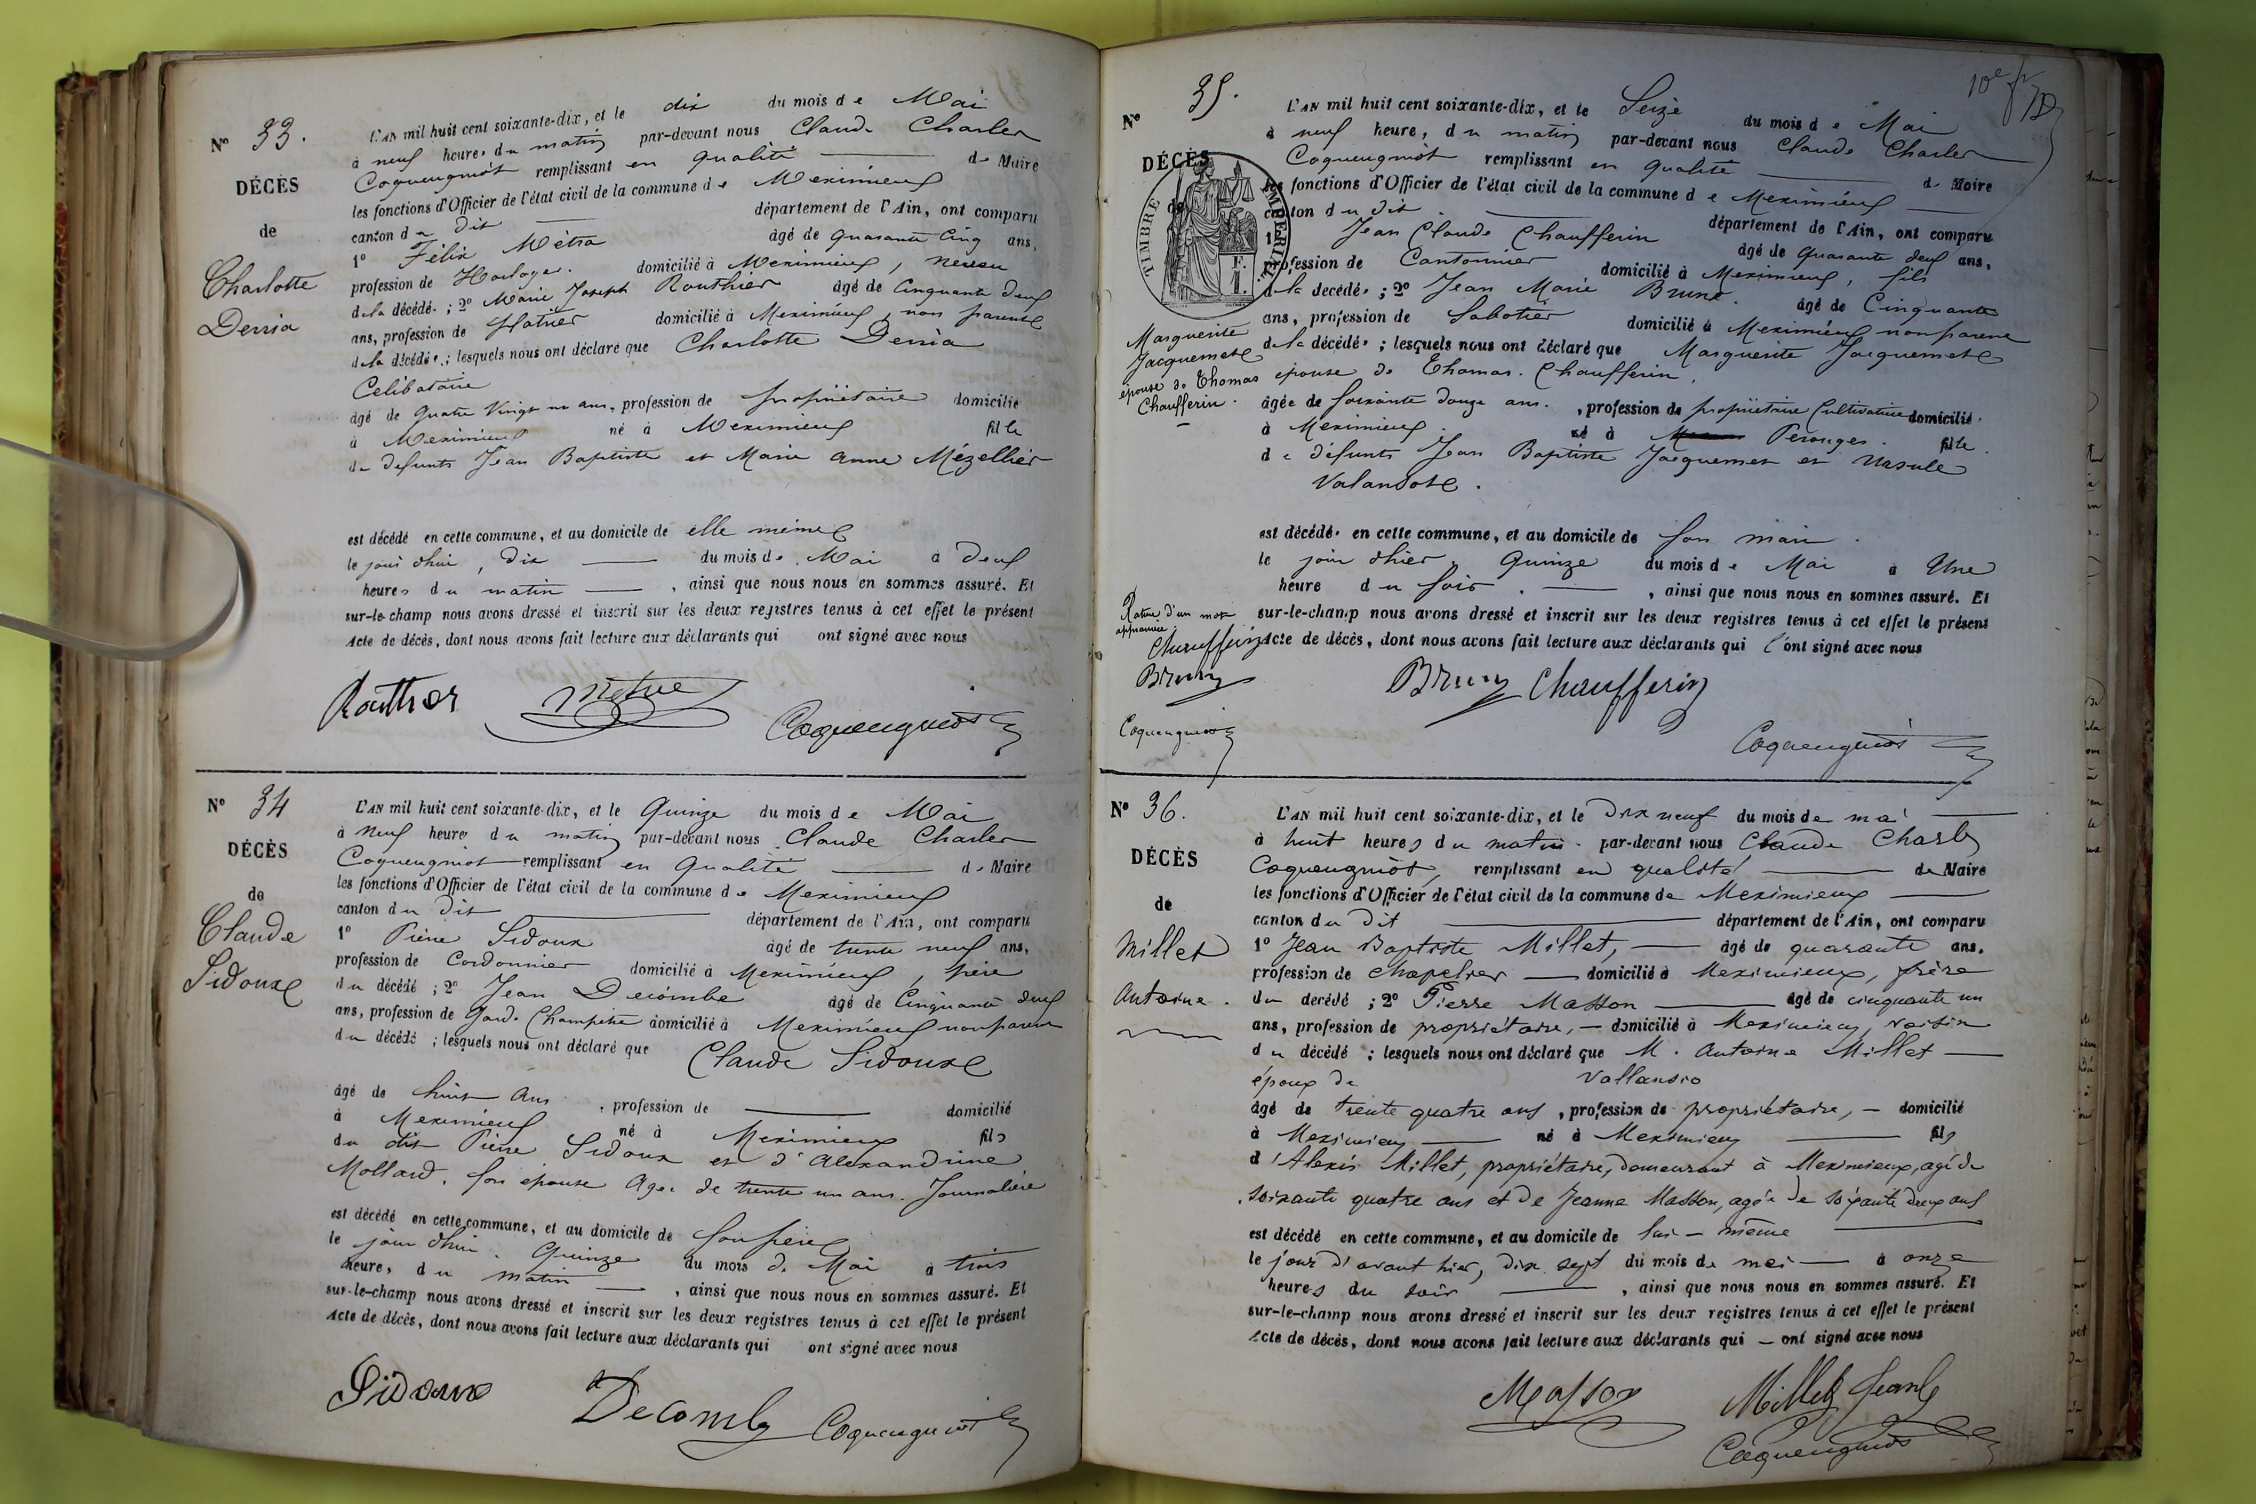 N° 33.
DÉCÈS
de
Charlotte
Derria
L'AN mil huit cent soixante-dix, et le dix du mois de Mai
à neuf heures du matin par-devant nous Claude Charles
Coqueugniot remplissant en qualité de Maire
les fonctions d'Officier de l'état civil de la commune de Meximieux
canton du dit département de l'Ain, ont comparu
1° Félix Métra âgé de quarante cinq ans,
profession de Horloger domicilié à Meximieux, neveu
de la décédée ; 2° Marie Joseph Routhier âgé de Cinquante deux
ans, profession de platrier domicilié à Meximieux, non parent
de la décédée ; lesquels nous ont déclaré que Charlotte Derria
Celibataire
âgé de quatre vingt un ans, profession de propriétaire domicilié
à Meximieux né à Meximieux fille
de defunts Jean Baptiste et Marie Anne Mézellier
est décédé en cette commune, et au domicile de elle même
le jour d'hui, dix du mois de Mai à deux
heures du matin, ainsi que nous nous en sommes assuré. Et
sur-le-champ nous avons dressé et inscrit sur les deux registres tenus à cet effet le présent
Acte de décès, dont nous avons fait lecture aux déclarants qui ont signé avec nous
Routhier Métra Coqueugniot
N° 34
DÉCÈS
de
Claude
Sidoux
L'AN mil huit cent soixante-dix, et le Quinze du mois de Mai
à neuf heures du matin par-devant nous Claude Charles
Coqueugniot remplissant en qualité de Maire
les fonctions d'Officier de l'état civil de la commune de Meximieux
canton du dit département de l'Ain, ont comparu
1° Pierre Sidoux âgé de trente neuf ans,
profession de Cordonnier domicilié à Meximieux, père
du décédé ; 2° Jean Decombe âgé de Cinquante deux
ans, profession de Garde Champêtre domicilié à Meximieux non parent
du décédé ; lesquels nous ont déclaré que Claude Sidoux
âgé de huit ans, profession de domicilié
à Meximieux né à Meximieux fils
du dit Pierre Sidoux et d'Alexandrine
Mollard, son épouse agée de trente un ans. Journalière
est décédé en cette commune, et au domicile de son père
le jour d'hui, Quinze du mois de Mai à trois
heures du matin, ainsi que nous nous en sommes assuré. Et
sur-le-champ nous avons dressé et inscrit sur les deux registres tenus à cet effet le présent
Acte de décès, dont nous avons fait lecture aux déclarants qui ont signé avec nous
Sidoux Decombe Coqueugniot
10e
N° 35.
DÉCÈS
de
TIMBRE IMPÉRIAL
Marguerite
Jacquemet
épouse de Thomas
Chaufferin.
L'AN mil huit cent soixante-dix, et le Seize du mois de Mai
à neuf heure, du matin par-devant nous Claude Charles
Coqueugniot remplissant en qualité de Maire
les fonctions d'Officier de l'état civil de la commune de Meximieux
canton du dit département de l'Ain, ont comparu
1° Jean Claude Chaufferin âgé de quarante deux ans,
profession de Cantonnier domicilié à Meximieux, fils
de la decédée ; 2° Jean Marie Brune. âgé de Cinquante
ans, profession de Sabotier domicilié à Meximieux non parent
de la décédée ; lesquels nous ont déclaré que Marguerite Jacquemet
épouse de Thomas Chaufferin,
âgée de soixante douze ans, profession de propriétaire Cultivatrice domicilié
à Meximieux. né à Perouges. fille
de défunts Jean Baptiste Jacquemet et Ursule
Valansot.
est décédée en cette commune, et au domicile de son mari.
le jour d'hier, Quinze du mois de Mai à Une
heure du soir, ainsi que nous nous en sommes assuré. Et
sur-le-champ nous avons dressé et inscrit sur les deux registres tenus à cet effet le présent
Acte de décès, dont nous avons fait lecture aux déclarants qui l'ont signé avec nous
Rature d'un mot
approuvée
Chaufferin
Brun
Coqueugniot
Brun Chaufferin
Coqueugniot
N° 36.
DÉCÈS
de
Millet
Antoine.
L'AN mil huit cent soixante-dix, et le Dix neuf du mois de mai
à huit heures du matin par-devant nous Claude Charles
Coqueugniot, remplissant en qualité de Maire
les fonctions d'Officier de l'état civil de la commune de Meximieux
canton du dit département de l'Ain, ont comparu
1° Jean Baptiste Millet, âgé de quarante ans,
profession de chapelier domicilié à Meximieux, frère
du decédé ; 2° Pierre Masson âgé de cinquante un
ans, profession de propriétaire, domicilié à Meximieux, voisin
du décédé ; lesquels nous ont déclaré que M. Antoine Millet
époux de Vallansio
âgé de trente quatre ans, profession de propriétaire, domicilié
à Meximieux né à Meximieux fils
d'Alexis Millet, propriétaire, demeurant à Meximieux, agé de
soixante quatre ans et de Jeanne Masson, agée de soixante deux ans
est décédé en cette commune, et au domicile de lui-même
le jour d'avant hier, dix sept du mois de mai à onze
heures du soir, ainsi que nous nous en sommes assuré. Et
sur-le-champ nous avons dressé et inscrit sur les deux registres tenus à cet effet le présent
Acte de décès, dont nous avons fait lecture aux déclarants qui ont signé avec nous
Masson Millet Jean
Coqueugniot